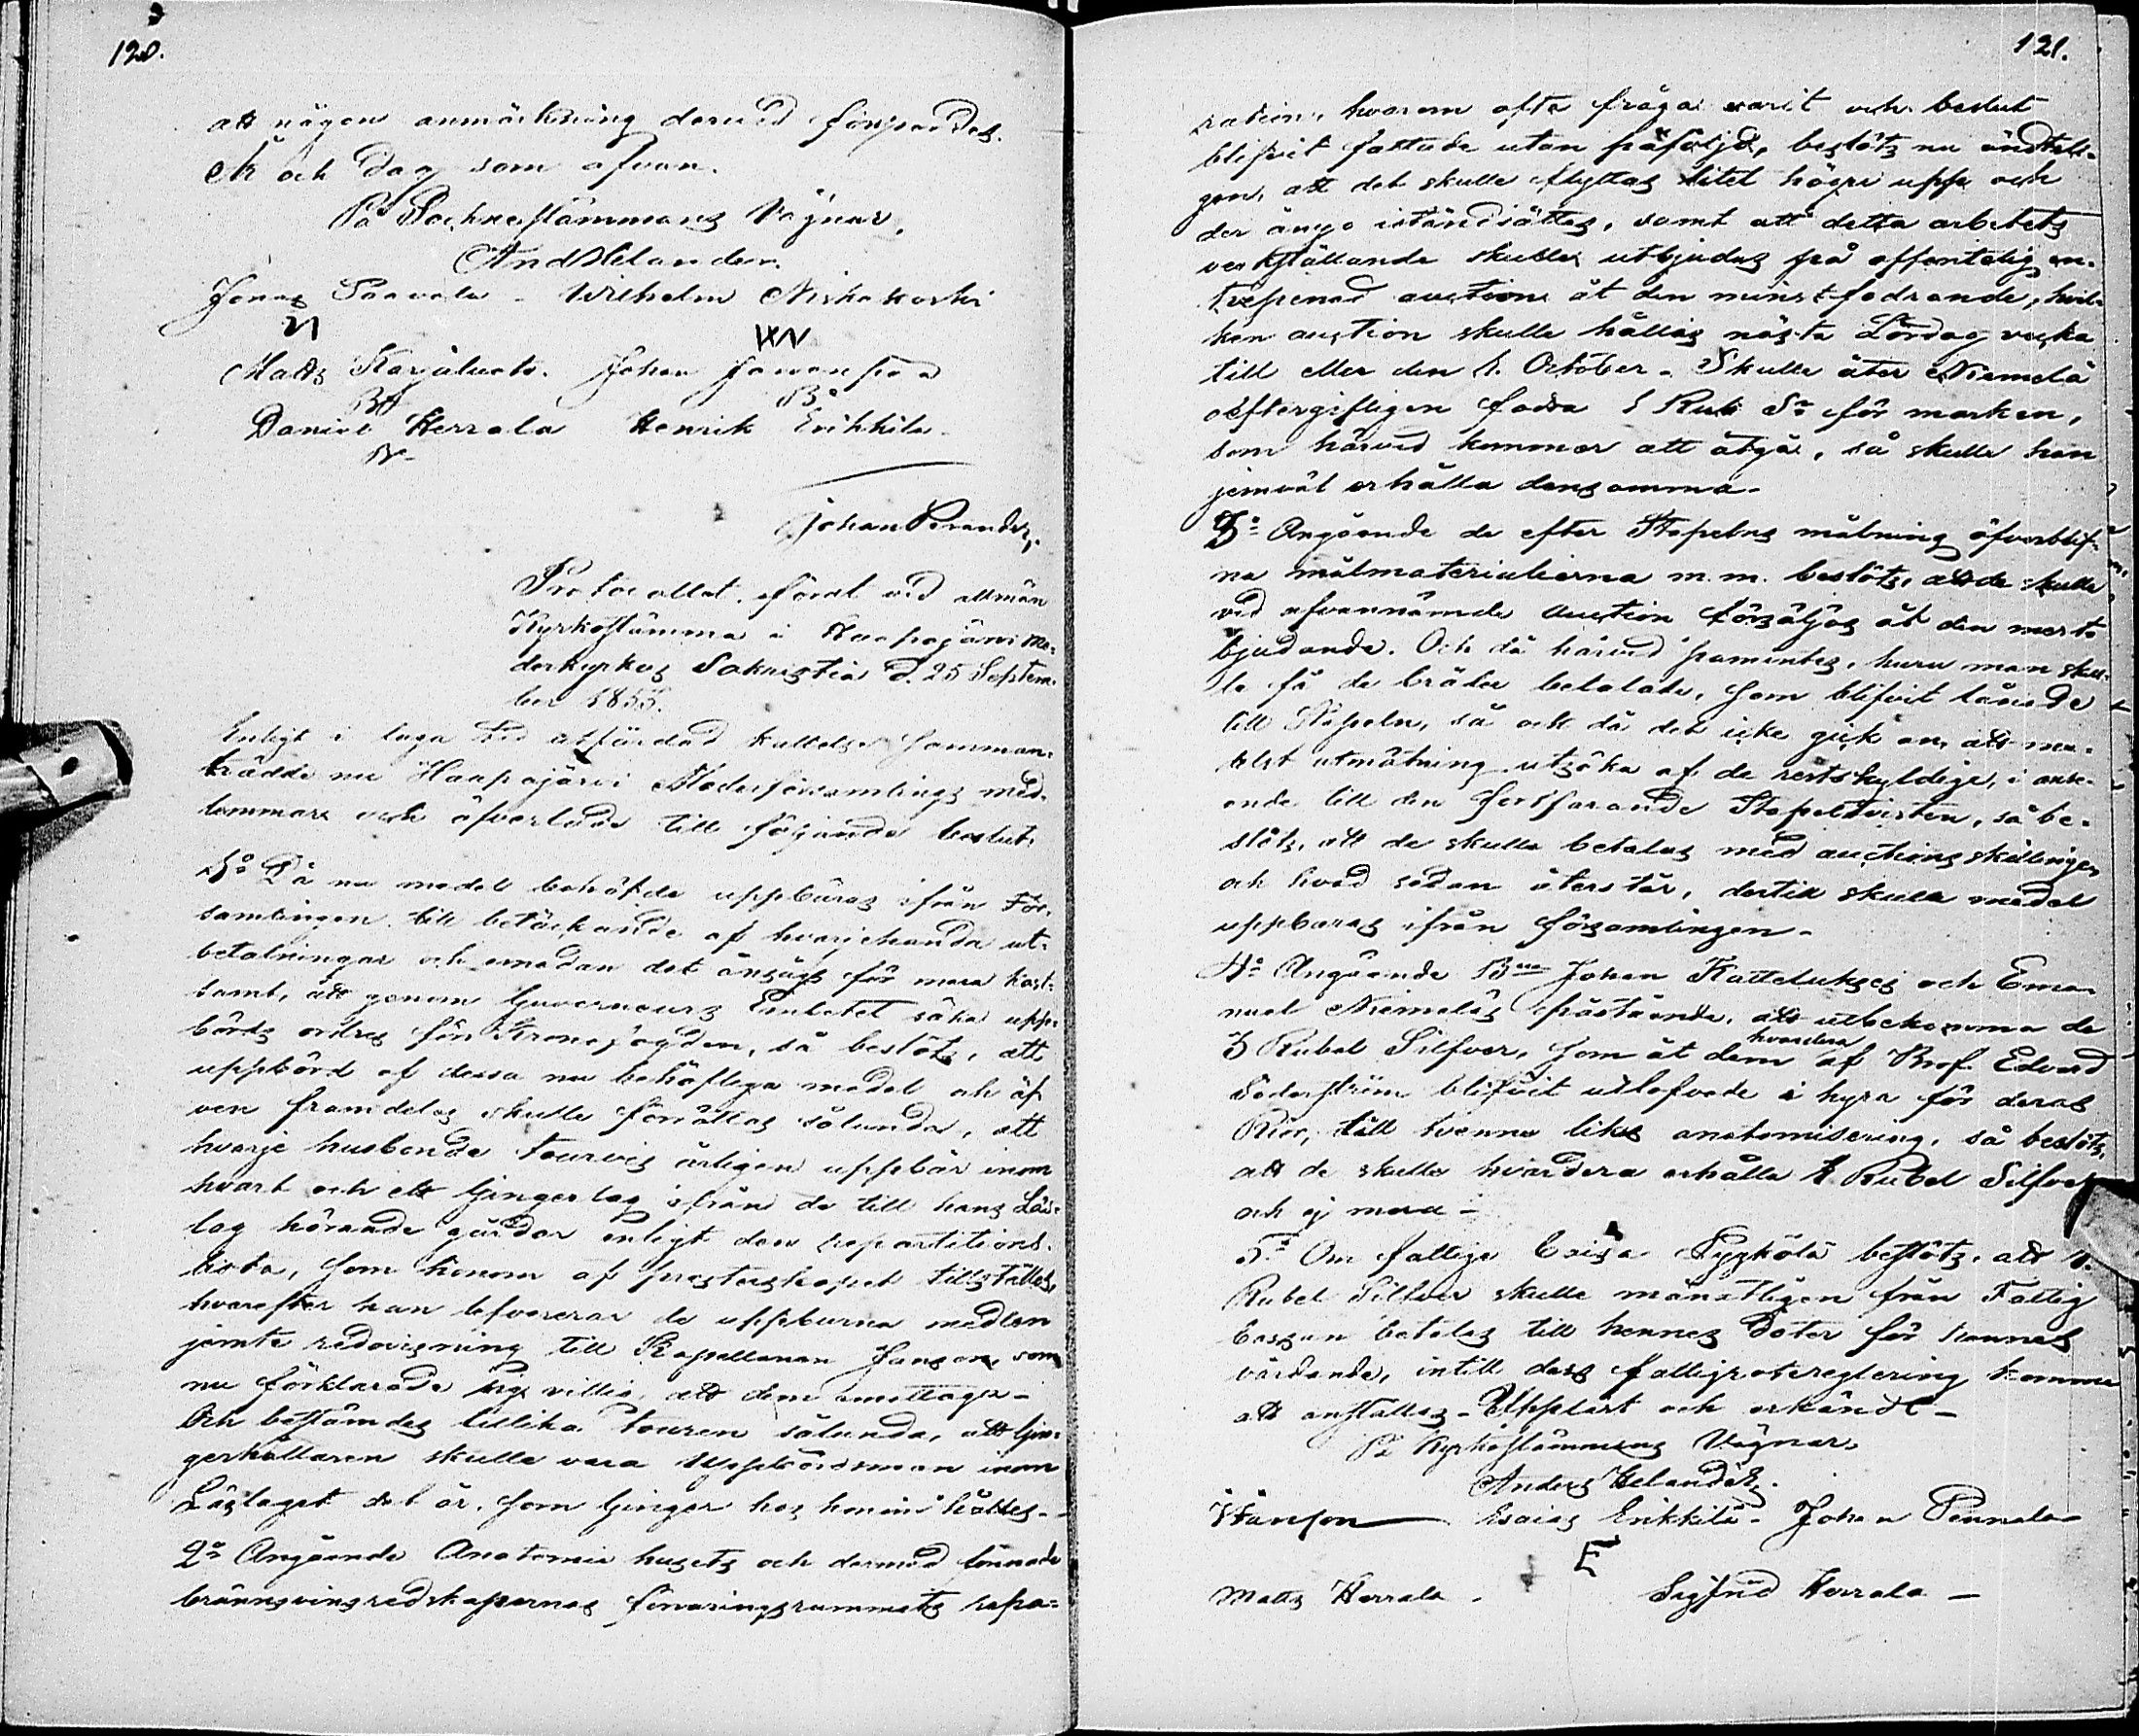 120.
att någon anmärkning dervid försports.
År och Dag som ofvan.
På Sochnestämmans Vägnar,
And Helander.
Jonas Saavala - Wilhelm Niskakoski
Matts Karjaluoto. Johan
Daniel Herrala Henrik Erikkila
Johan Perander,
Protocollet, fördt vid allmän
Kyrkostämma i Haapajärvi Mo-
derkyrkas Sakristia d. 25 Septem-
ber 1855.
Enligt i laga tid utfärdad kallelse samman-
trädde nu Haapajärvi Moderförsamlings med-
lemmar och öfverlade till följande beslut:
1o Då nu medel behöfde uppbäras ifrån För-
samlingen till betäckande af hvarjehanda ut-
betalningar och emedan det ansågs för mera kost-
samt, att genom Guverneurs Embetet söka upp-
börds ordres för Kronofogden, så beslöts, att
uppbörd af dessa nu behöfliga medel och äf-
ven framdeles skulle förrättas sålunda, att
hvarje husbonde tourvis årligen uppbär inom
hvart och ett Gingerlag ifrån de till hans Läs-
lag hörande gårdar enligt den repartitions-
lista, som honom af presterskapet tillställes,
hvarefter han lefvererar de uppburna medlen
jemte redovisning till Kapellanen Janson, som
nu förklarade sig villig att dem emottaga -
Och bestämdes tillika touren sålunda, att Gin-
gerhållaren skulle vara Uppbördsman inom
Läslaget det år, som Ginger hos honom hålles. -
2o Angående Anatomie husets och dermed
brännvinsredskapernas förvaringsrummets repa-
121.
ration, hvarom ofta fråga varit och beslut
blifvit fattade utan påföljd, beslöts nu ändtli-
gen, att det skulle flyttas litet högre upp och
der ånyo iståndsättas, samt att detta arbetets
verkställande skulle utbjudas på offentelig en-
trepenad auction åt den minst fodrande, hvil-
ken auction skulle hållas nästa Lördag vecka
till eller den 1. October - Skulle åter Niemelä
oeftergifligen fodra 1 Rub Sr för marken,
som härvid kommer att åtgå, så skulle han
jemväl erhålla densamma -
3o Angående de efter Stapelns målning öfverblif-
na målmaterialierna m. m. beslöts, att de skulle
vid ofvannämde auction försäljas åt den mest
bjudande. Och då härvid påmintes, huru man skul-
le få de bräder betalade, som blifvit lånade
till Stapeln, så och då det icke gick an, att me-
delst utmätning utsöka af de restskyldige, i anse-
ende till den fortfarande Stapeltvisten, så be-
slöts, att de skulle betalas med auctions skillingen
och hvad sedan återstår, dertill skulle medel
uppbäras ifrån församlingen -
4o Angående Johan Kattelukses och Ema-
nuel Niemeläs påstående, att utbekomma de
3 Rubel Silfver, som åt dem hvardera af Prof. Edvard
Söderström blifvit utlofvade i hyra för deras
Rior, till tvenne liks anatomisering, så beslöts,
att de skulle hvardera erhålla 1 Rubel Silfver
och ej mera -
5o Om fattige Caisa Pyykölä beslöts, att 1.
Rubel Silfver skulle månatligen från Fattig
Cassan betalas till hennes Doter för hennes
vårdande, intill dess fattigvårdsreglering komme
att anställas - Uppläst och erkändt -
På Kyrkostämmans Vägnar,
Anders Helander.
Esaias Erikkilä - Johan Pennala
E
Matts Herrala - Sigfrid Herrala -